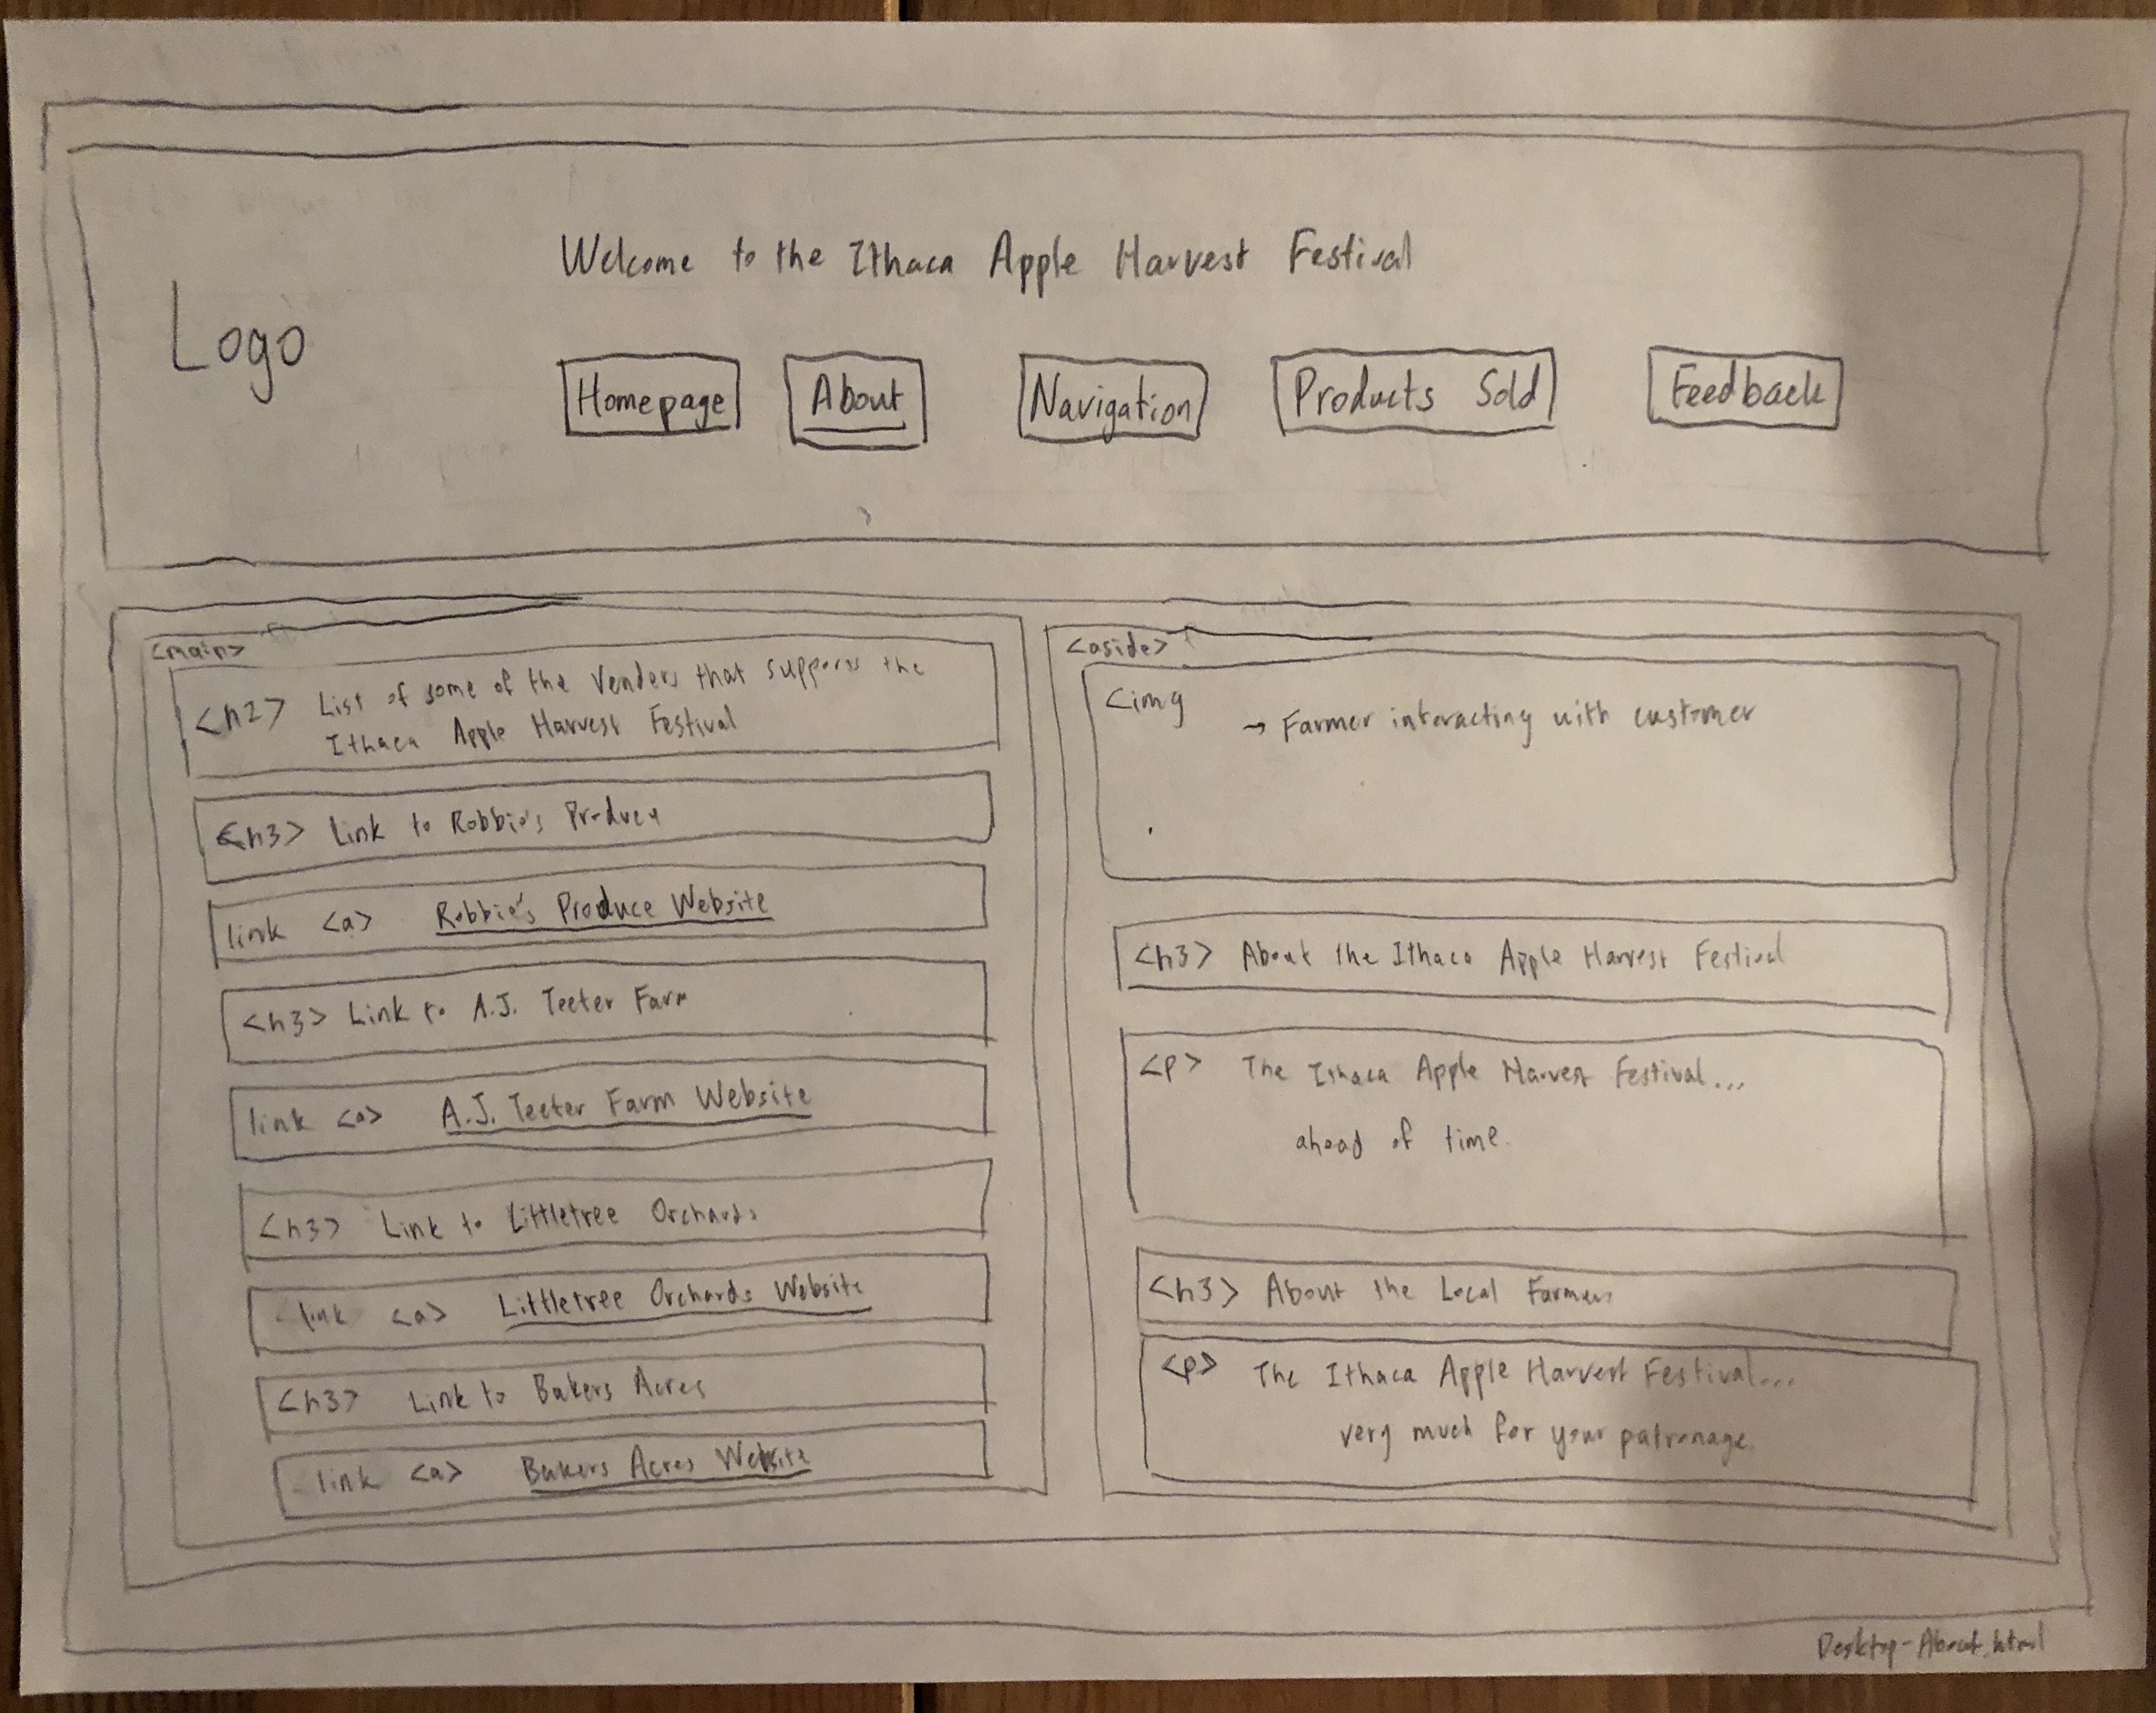 Welcome to the Ithaca Apple Harvest Festival
Logo
Homepage About Navigation Products Sold Feedback
<main>
<h2> List of some of the Venders that supports the
Ithaca Apple Harvest Festival
<h3> Link to Robbie's Produce
link <a> Robbie's Produce Website
<h3> Link to A.J. Teeter Farm
link <a> A.J. Teeter Farm Website
<h3> Link to Littletree Orchards
link <a> Littletree Orchards Website
<h3> Link to Bakers Acres
link <a> Bakers Acres Website
<aside>
<img → Farmer interacting with customer
<h3> About the Ithaca Apple Harvest Festival
<p> The Ithaca Apple Harvest Festival...
ahead of time.
<h3> About the Local Farmers
<p> The Ithaca Apple Harvest Festival...
very much for your patronage.
Desktop-About.html